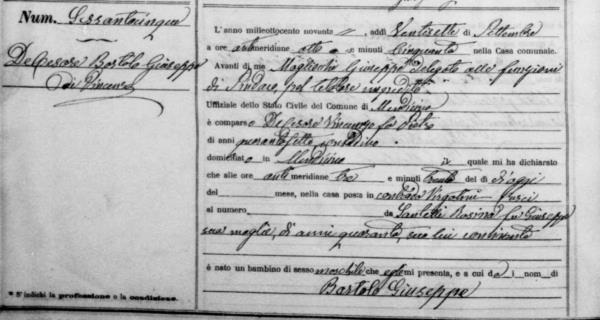 Num. Sessantacinque
DeCesare Bartolo Giuseppe
di Vincenzo
* S'indichi la professione o la condizione.
L'anno milleottocento novanta =, addì Ventisette di Settembre
a ore antimeridiane otto e minuti Cinquanta nella Casa comunale.
Avanti di me Giuseppe Delegato alle funzioni
di Sindaco, impedito
Uffiziale dello Stato Civile del Comune di Mendicino
è comparso DeCesare Vincenzo fu Pietro
di anni quarantasette, contadino
domiciliato in Mendicino il quale mi ha dichiarato
che alle ore antimeridiane tre e minuti trenta del dì d'oggi
del mese, nella casa posta in contrada
al numero da Rosina fu Giuseppe
sua moglie, di anni quaranta, seco lui convivente
è nato un bambino di sesso maschile che egli mi presenta, e a cui dà i nomi di
Bartolo Giuseppe